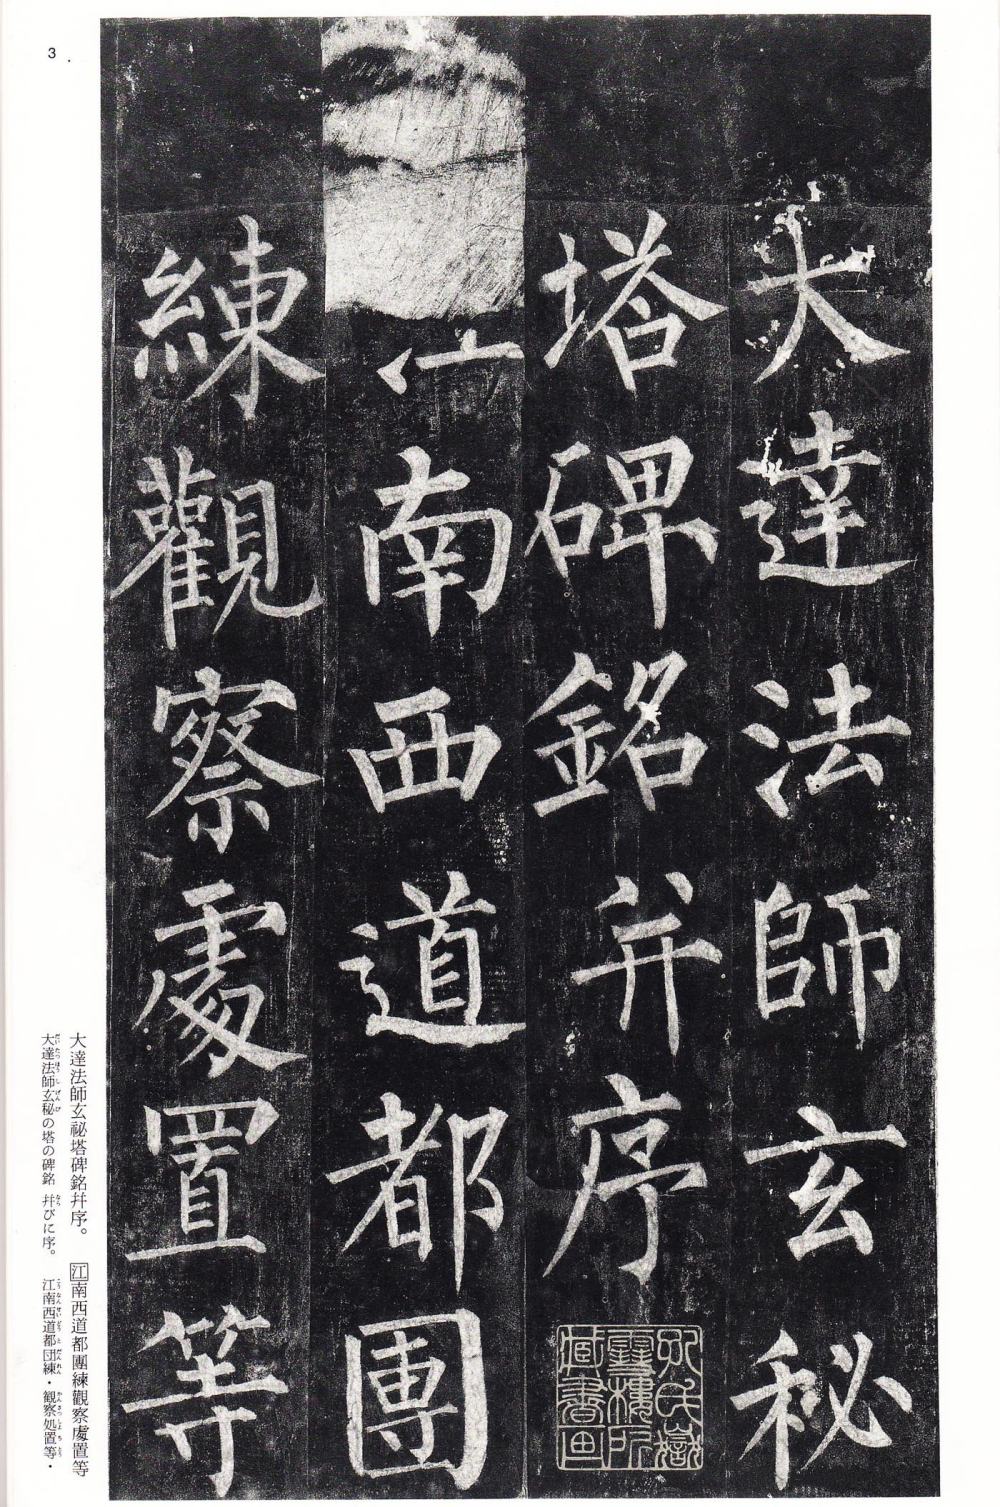 3
大達法師玄秘
塔碑銘并序
江南西道都團
練觀察處置等
大達法師玄祕塔碑銘幷序。 江南西道都團練觀察處置等
大達法師玄秘の塔の碑銘 幷びに序。 江南西道都団練・観察処置等・